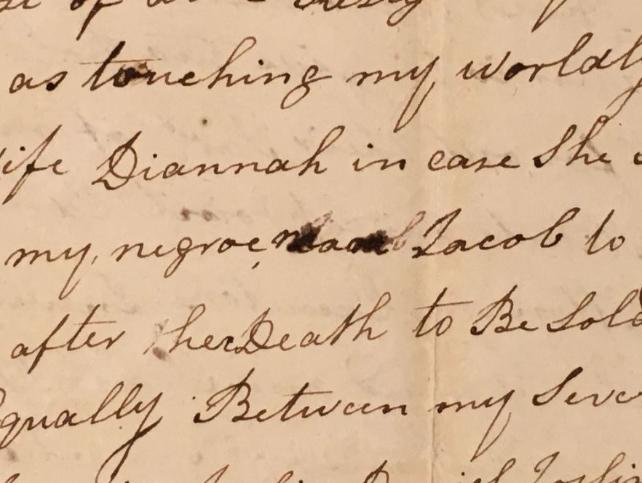 as touching my worldly
ife Diannah in case She
my negroe Jacob to
after her Death to Be Sold
Equally Between my Seve